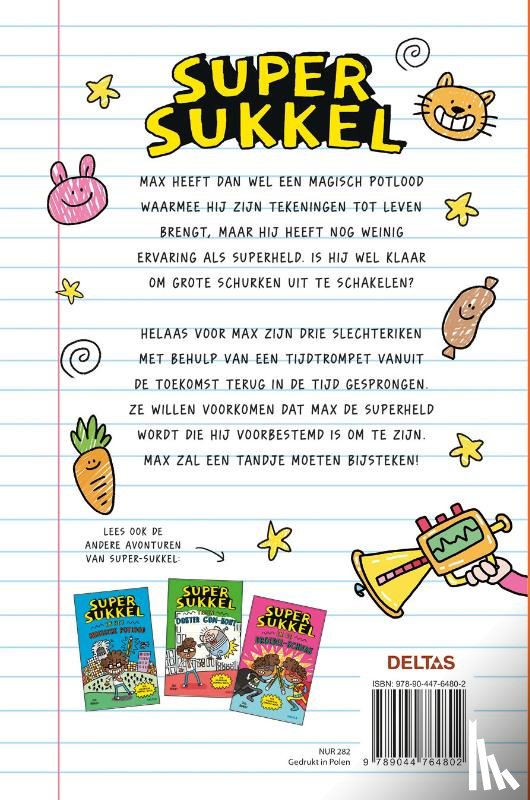 SUPER
SUKKEL
MAX HEEFT DAN WEL EEN MAGISCH POTLOOD
WAARMEE HIJ ZIJN TEKENINGEN TOT LEVEN
BRENGT, MAAR HIJ HEEFT NOG WEINIG
ERVARING ALS SUPERHELD. IS HIJ WEL KLAAR
OM GROTE SCHURKEN UIT TE SCHAKELEN?
HELAAS VOOR MAX ZIJN DRIE SLECHTERIKEN
MET BEHULP VAN EEN TIJDTROMPET VANUIT
DE TOEKOMST TERUG IN DE TIJD GESPRONGEN.
ZE WILLEN VOORKOMEN DAT MAX DE SUPERHELD
WORDT DIE HIJ VOORBESTEMD IS OM TE ZIJN.
MAX ZAL EEN TANDJE MOETEN BIJSTEKEN!
LEES OOK DE
ANDERE AVONTUREN
VAN SUPER-SUKKEL:
SUPER
SUKKEL
SUPER
SUKKEL
SUPER
SUKKEL
DELTAS
ISBN: 978-90-447-6480-2
NUR 282
Gedrukt in Polen
9 789044 764802